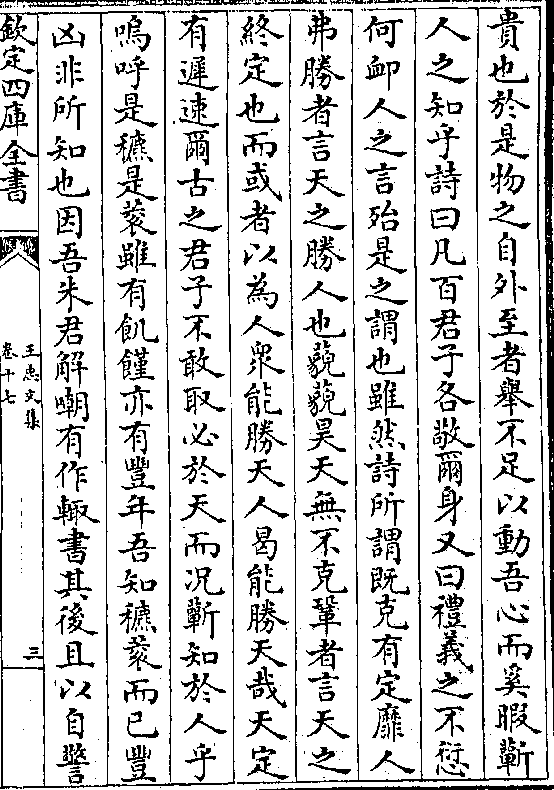 貴也於是物之自外至者舉不足以動吾心而奚暇蘄
人之知乎詩曰凡百君子各敬爾身又曰禮義之不愆
何䘏人之言殆是之謂也雖然詩所謂既克有定靡人
弗勝者言天之勝人也藐藐昊天無不克鞏者言天之
終定也而或者以為人衆能勝天人曷能勝天哉天定
有遲速爾古之君子不敢取必於天而况蘄知於人乎
嗚呼是穮是蔉雖有飢饉亦有豐年吾知穮蔉而已豐
凶非所知也因吾朱君解嘲有作輙書其後且以自警
欽定四庫全書
王忠文集
卷十七
三